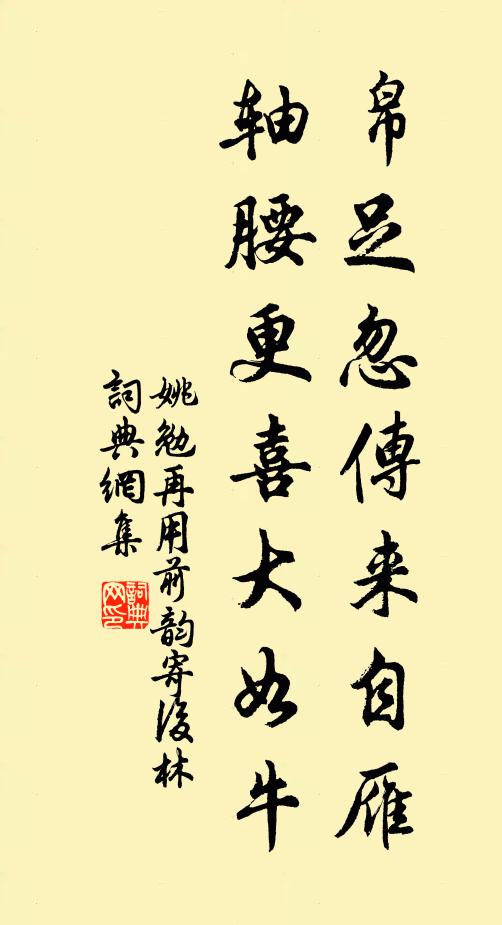 帛足忽傳来自雁
軸腰更喜大如牛
姚勉再用前韵寄後林
詞典網集
詞典网印